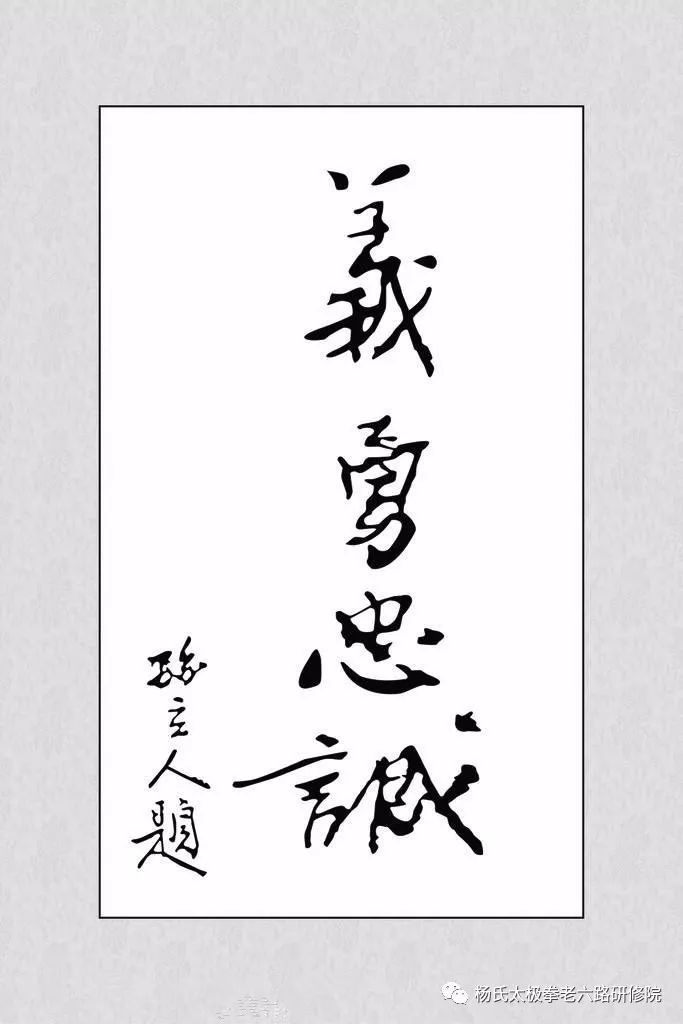 義勇忠誠
孫立人題
杨氏太极拳老六路研修院